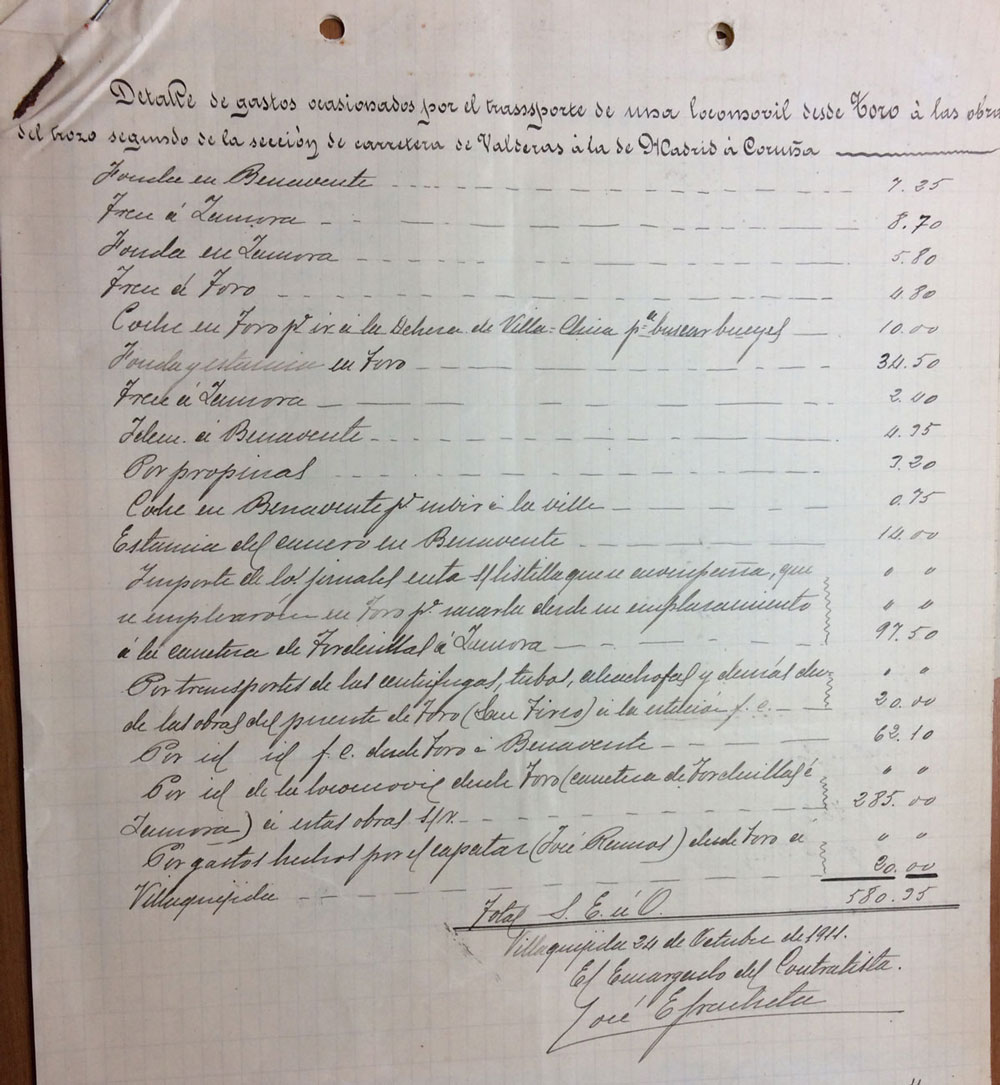 Detalle de gastos ocasionados por el transsporte de una locomovil desde Toro á las obras
del trozo segundo de la sección de carretera de Valderas á la de Madrid á Coruña
Fonda en Benavente 7.25
Tren á Zamora 8.70
Fonda en Zamora 5.80
Tren á Toro 4.80
Coche en Toro pª ir á la Dehesa de Villa-Chica pª buscar bueyes 10.00
Fonda y estancia en Toro 34.50
Tren á Zamora 2.40
Idem. á Benavente 4.95
Por propinas 3.20
Coche en Benavente pª subir á la villa 0.75
Estancia del carrero en Benavente 14.00
Importe de los jornales s/ listilla que se acompaña, que " "
se emplearón en Toro pª sacarla desde su emplazamiento " "
á la carretera de Tordesillas á Zamora 97.50
Por transportes de las centrifugas, tubos, alcachofas y demás " "
de las obras del puente de Toro ( ) á la estación f. c. 20.00
Por id id f. c. desde Toro á Benavente 62.10
Por id de la locomovil desde Toro (carretera de Tordesillas á " "
Zamora) á estas obras s/r. 285.00
Por gastos hechos por el capataz (José Ramos) desde Toro á " "
Villaquejida 20.00
Total S. E. ú O. 580.95
Villaquejida 24 de Octubre de 1911.
El Encargado del Contratista.
José